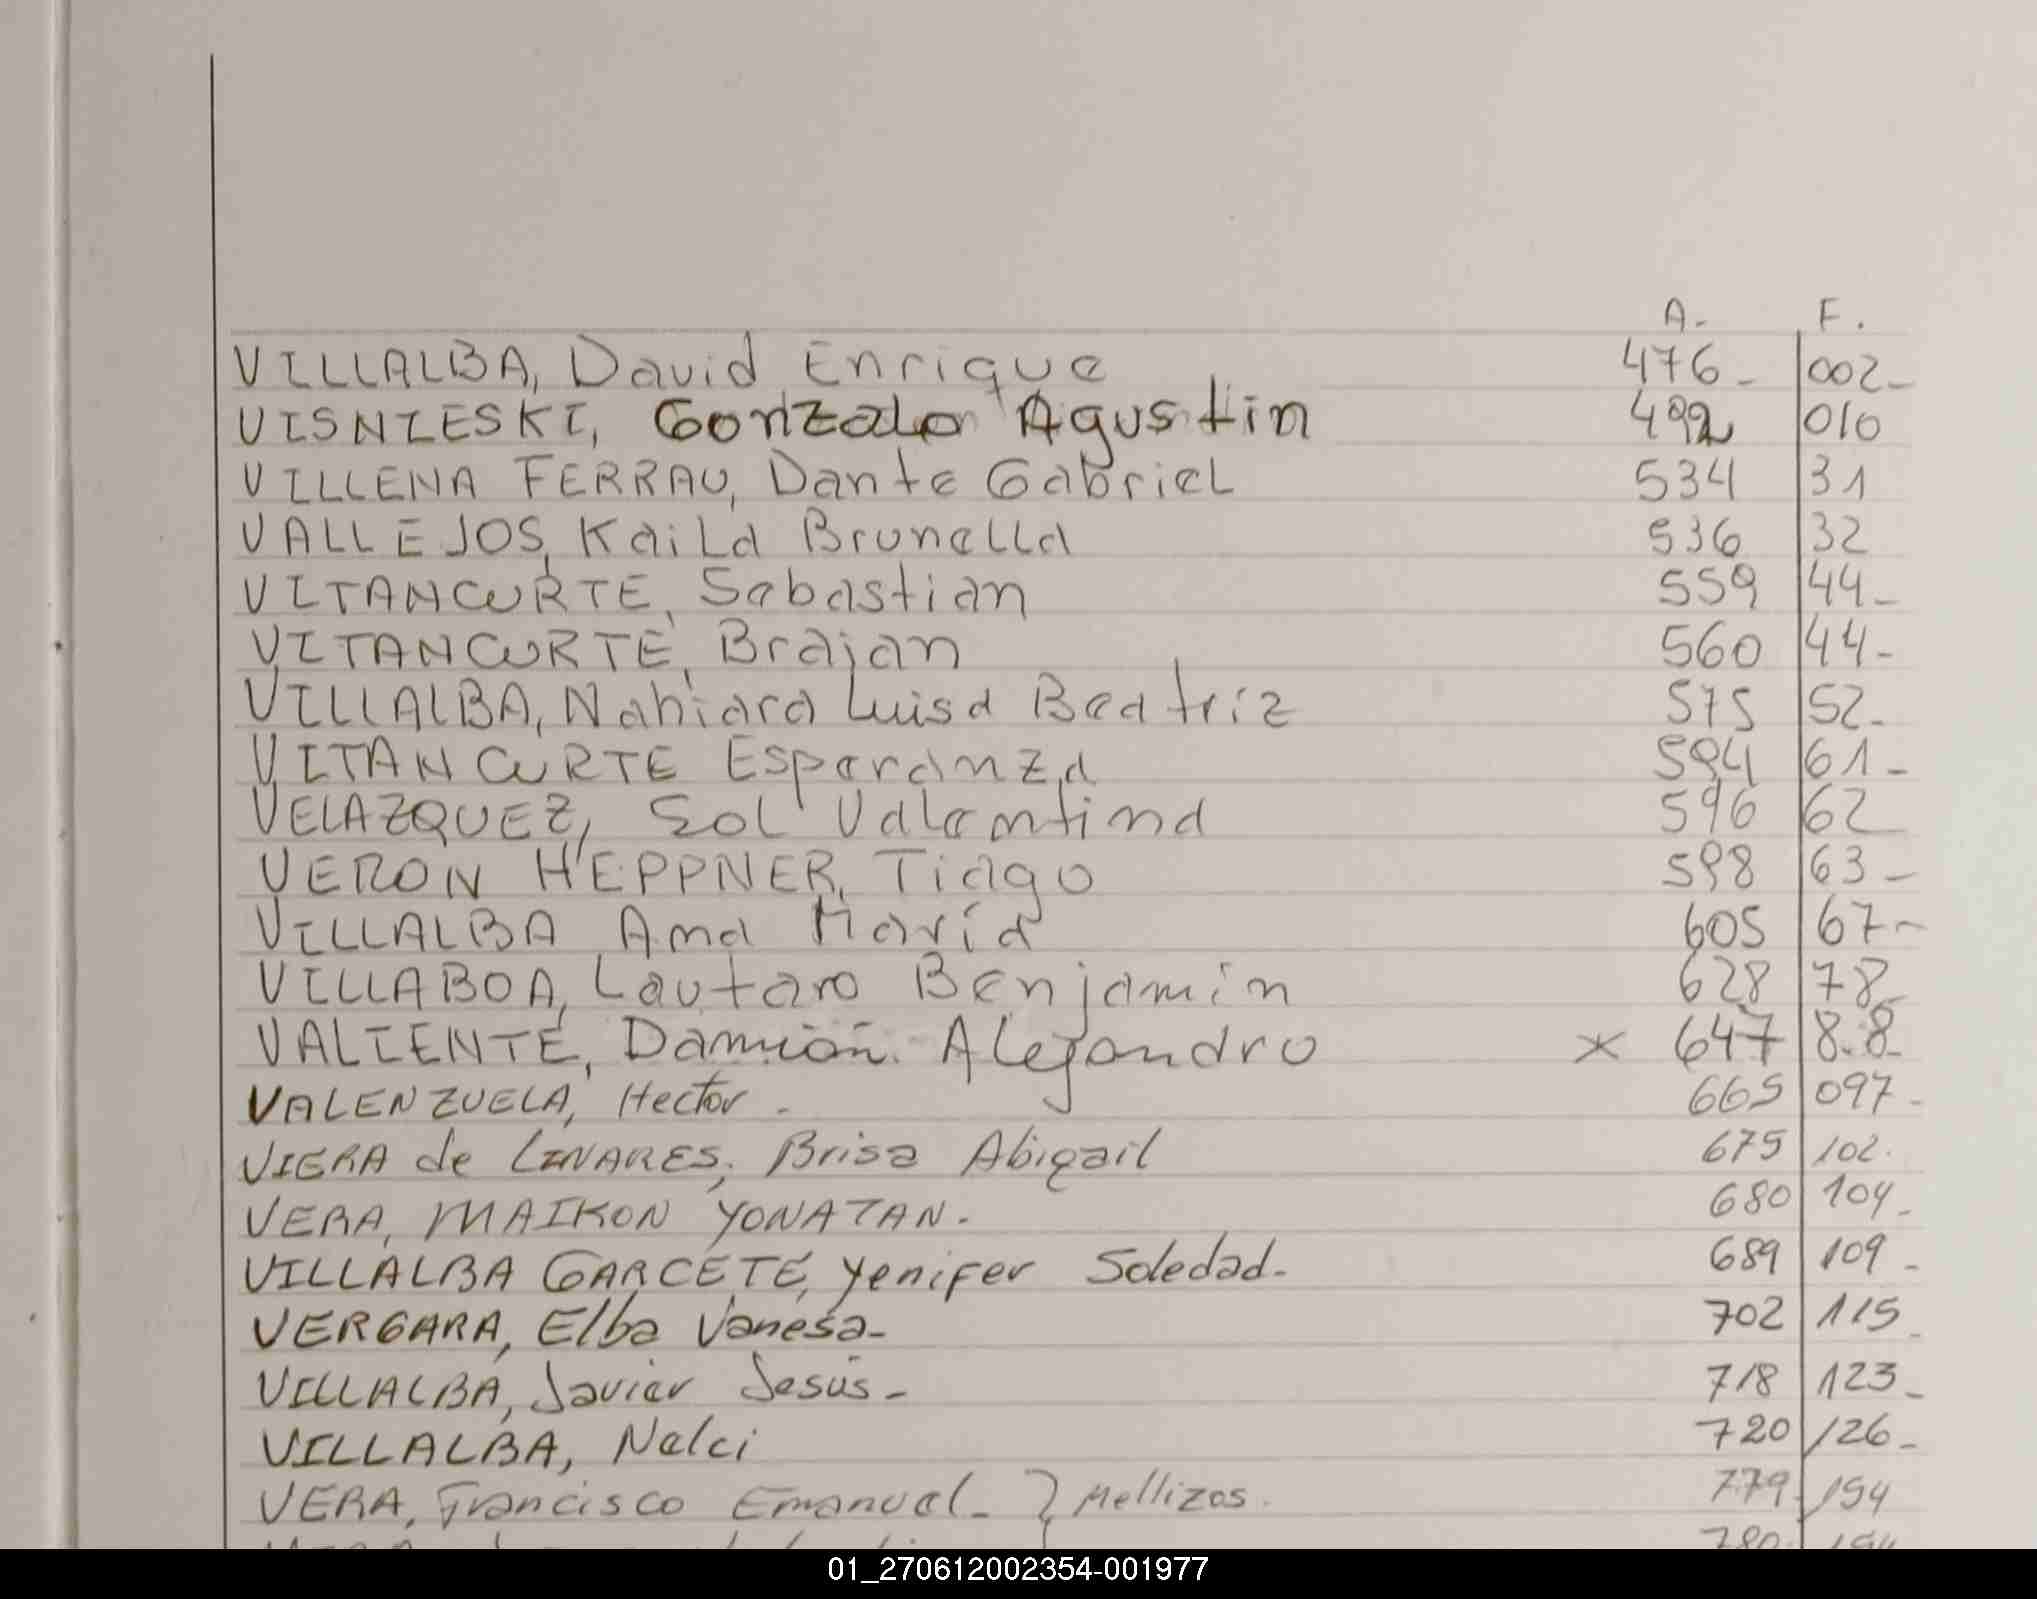 A. F.
VILLALBA, David Enrique 476 002
VISNIESKI, Gonzalo Agustin 492 010
VILLENA FERRAU, Dante Gabriel 534 31
VALLEJOS, Kaila Brunella 536 32
VITANCURTE, Sebastian 559 44
VITANCURTE, Braian 560 44
VILLALBA, Nahiara Luisa Beatriz 575 52
VITANCURTE Esperanza 594 61
VELAZQUEZ, Sol Valentina 596 62
VERON HEPPNER, Tiago 598 63
VILLALBA Ana María 605 67
VILLABOA, Lautaro Benjamin 628 78
VALIENTE, Damián Alejandro x 647 88
VALENZUELA, Hector. 665 097
VIERA de LINARES, Brisa Abigail 675 102.
VERA, MAIKON YONATAN. 680 104
VILLALBA GARCETE, Yenifer Soledad. 689 109
VERGARA, Elba Vanesa 702 115
VILLALBA, Javier Jesús 718 123
VILLALBA, Nelci 720 126
VERA, Francisco Emanuel } Mellizos. 779 154
780
01_270612002354-001977